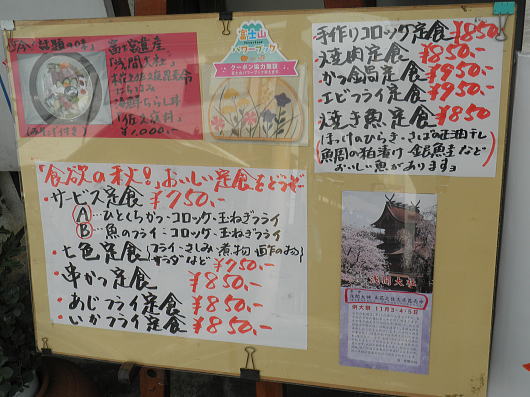 今、話題の味
富士宮遺産
「浅間大社」
海鮮ちらし丼
¥1,000.-
みそ汁付き
富士山
パワーブック
クーポン協力施設
手作りコロッケ定食 ¥850
・焼肉定食 ¥850.-
・かつ鍋定食 ¥950.-
・エビフライ定食 ¥950.-
・焼き魚定食 ¥850
ほっけのひらき・さばの正油干し
魚関の粕漬け・銀魚圭など
おいしい魚があります
「食欲の秋!」おいしい定食をどうぞ
・サービス定食 ¥750.-
Ⓐ…ひとくちかつ・コロッケ・玉ねぎフライ
Ⓑ…魚のフライ・コロッケ・玉ねぎフライ
・七色定食 フライ・さしみ・煮物
サラダなど ¥950.-
・串かつ定食 ¥850.-
・あじフライ定食 ¥850.-
・いかフライ定食 ¥850.-
浅間大社
例大祭 11月3・4・5日